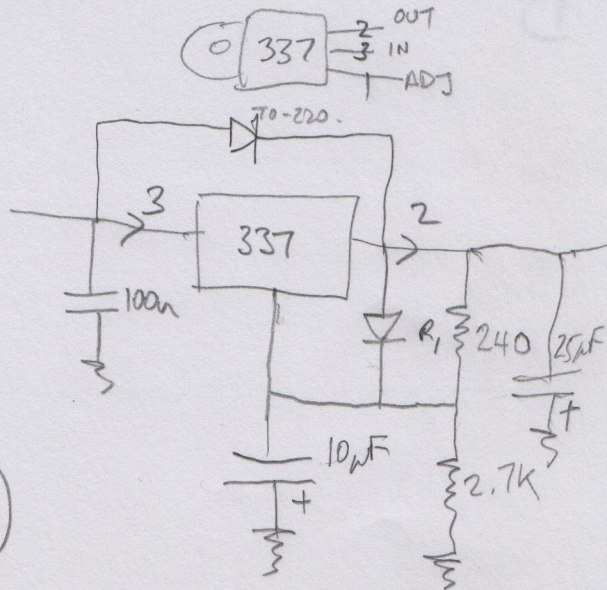 2 OUT
337 3 IN
1 ADJ
TO-220.
3 337 2
100n
R1 240 25µF
+
10µF
+
2.7K